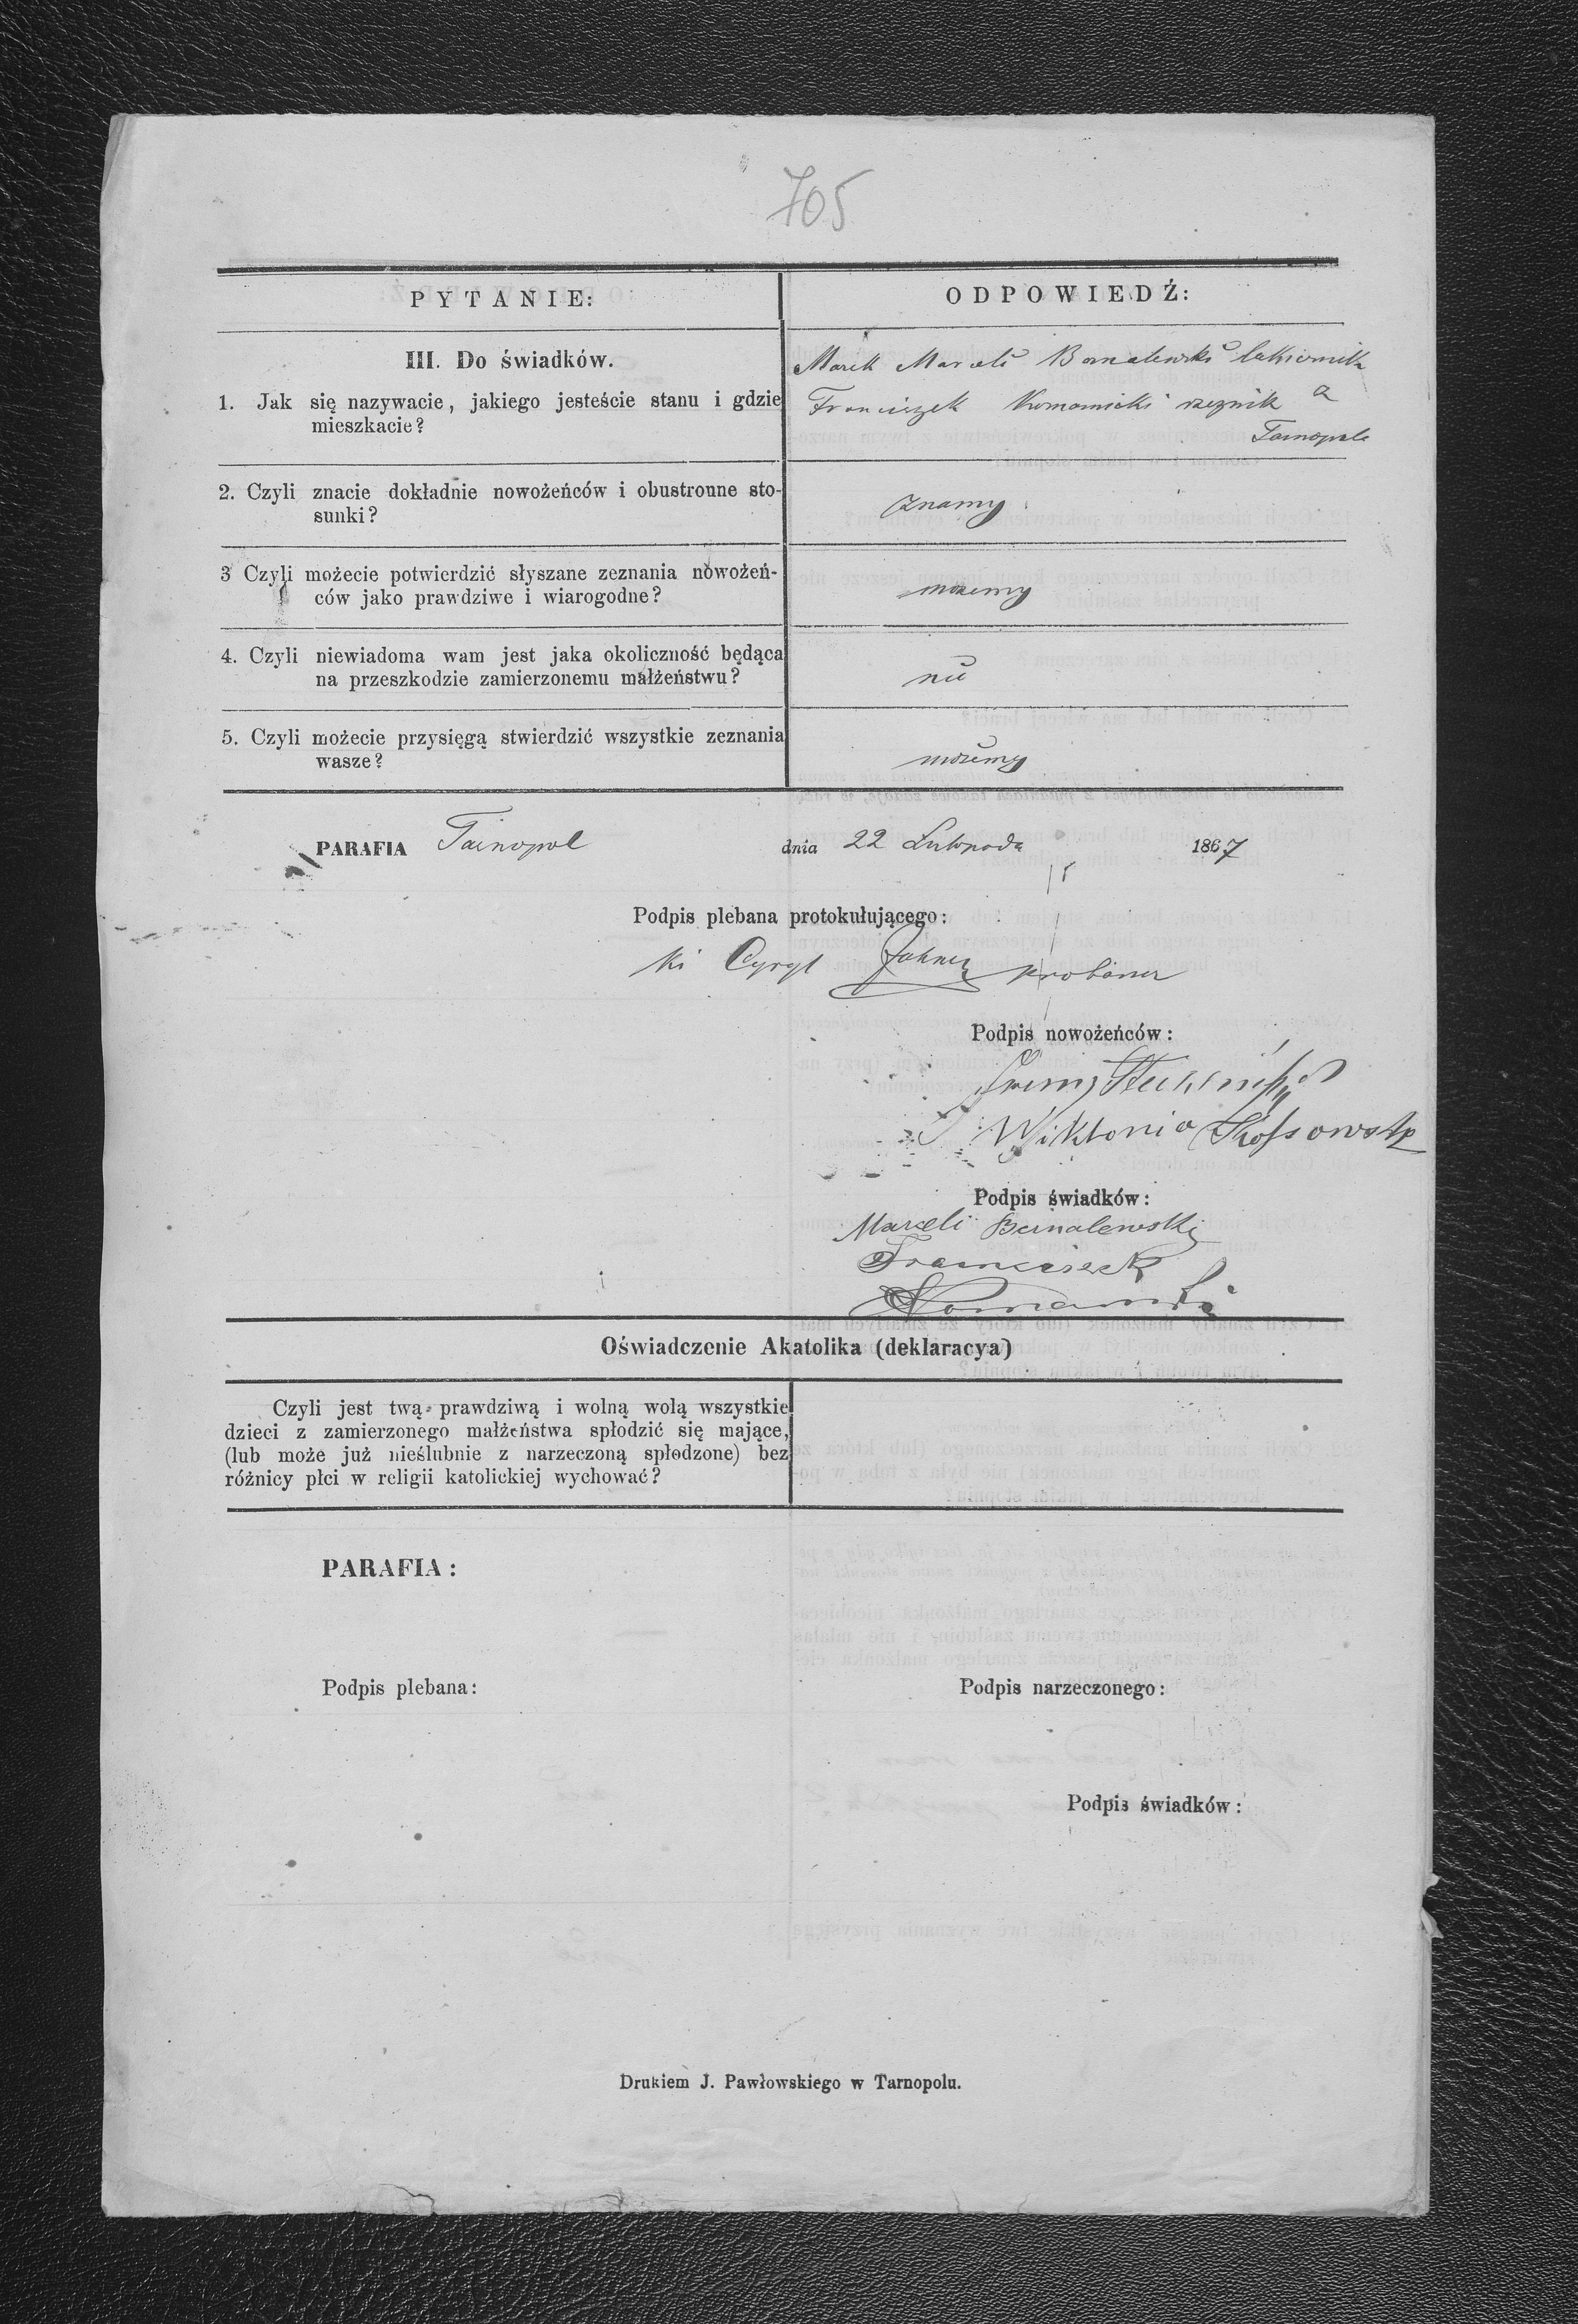 705
PYTANIE:
ODPOWIEDŹ:
III. Do świadków.
1. Jak się nazywacie, jakiego jesteście stanu i gdzie
mieszkacie?
Marek Marceli Bernalewski lakiernik
Franciszek rzeźnik
2. Czyli znacie dokładnie nowożeńców i obustronne sto-
sunki?
znamy
3 Czyli możecie potwierdzić słyszane zeznania nowożeń-
ców jako prawdziwe i wiarogodne?
możemy
4. Czyli niewiadoma wam jest jaka okoliczność będąca
na przeszkodzie zamierzonemu małżeństwu?
nie
5. Czyli możecie przysięgą stwierdzić wszystkie zeznania
wasze?
możemy
PARAFIA Tarnopol dnia 22 Listopada 1867
Podpis plebana protokułującego:
Cyryl
Podpis nowożeńców:
Wiktoria
Podpis świadków:
Marceli Bernalewski
Franciszek
Oświadczenie Akatolika (deklaracya)
Czyli jest twą prawdziwą i wolną wolą wszystkie
dzieci z zamierzonego małżeństwa spłodzić się mające,
(lub może już nieślubnie z narzeczoną spłodzone) bez
różnicy płci w religii katolickiej wychować?
PARAFIA:
Podpis plebana:
Podpis narzeczonego:
Podpis świadków:
Drukiem J. Pawłowskiego w Tarnopolu.